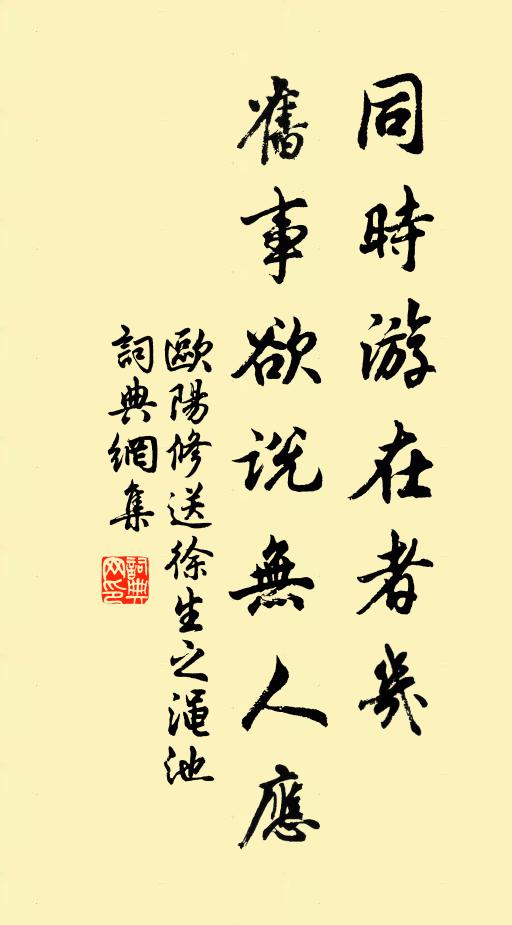 同時游在者幾
舊事欲说無人應
歐陽修送徐生之渑池
詞典網集
詞典
网印